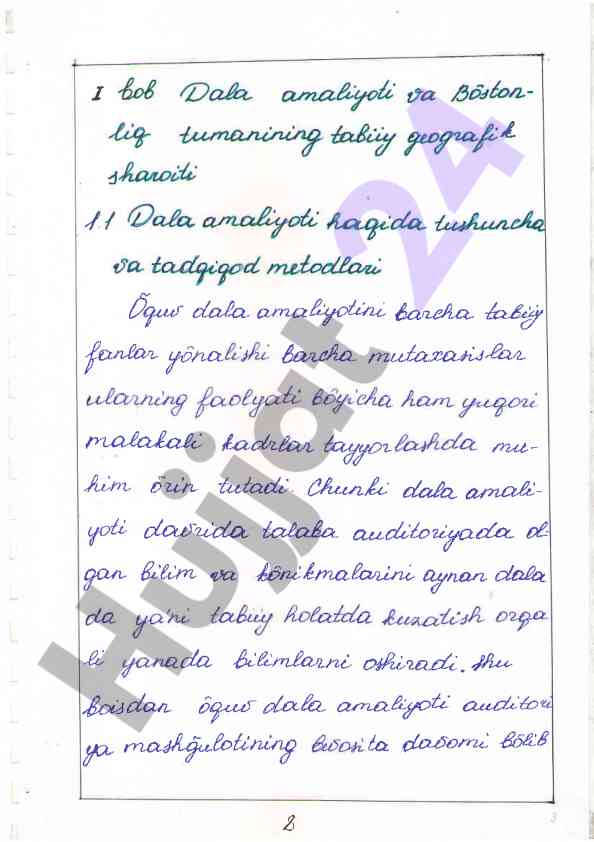 I bob Dala amaliyoti va Bōston-
liq tumanining tabiiy geografik
sharoiti
1.1 Dala amaliyoti haqida tushuncha
va tadqiqod metodlari
Ōquv dala amaliyotini barcha tabiiy
fanlar yōnalishi barcha mutaxasislar
ularning faolyati bōyicha ham yuqori
malakali kadrlar tayyorlashda mu-
him ōrin tutadi Chunki dala amali-
yoti davrida talaba auditoriyada ol-
gan bilim va kōnikmalarini aynan dala
da ya'ni tabiiy holatda kuzatish orqa
li yanada bilimlarni oshiradi. Shu
boisdan ōquv dala amaliyoti auditori
ya mashğulotining bevosita davomi bōlib
2
3
Hujjat 24